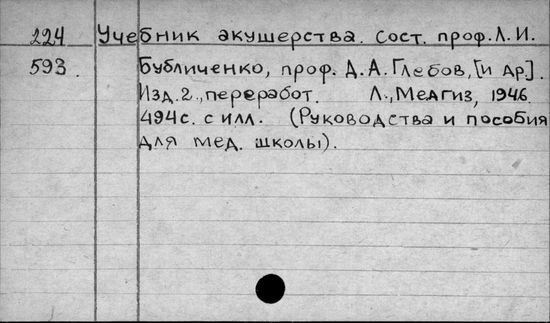 224 Учебник акушерства. Сост. проф. Л. И.
593. Бубличенко, проф. Д. А. Глебов, [и др].
Изд. 2., переработ. Л., Медгиз, 1946.
494с. с илл. (Руководства и пособия
для мед. школы).